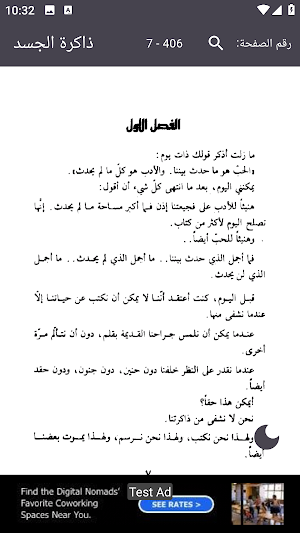 10:32
ذاكرة الجسد
7 - 406
رقم الصفحة:
الفصل الأول
ما زلت أذكر قولك ذات يوم:
«الحبّ هو ما حدث بيننا. والأدب هو كلّ ما لم يحدث».
يمكنني اليوم، بعد ما انتهى كلّ شيء أن أقول:
هنيئاً للأدب على فجيعتنا إذن فما أكبر مساحة ما لم يحدث. إنّها
تصلح اليوم لأكثر من كتاب.
وهنيئاً للحبّ أيضاً..
فما أجمل الذي حدث بيننا.. ما أجمل الذي لم يحدث.. ما أجمل
الذي لن يحدث.
قبل اليوم، كنت أعتقد أنّنا لا يمكن أن نكتب عن حياتنا إلّا
عندما نشفى منها.
عندما يمكن أن نلمس جراحنا القديمة بقلم، دون أن نتألّم مرّة
أخرى.
عندما نقدر على النظر خلفنا دون حنين، دون جنون، ودون حقد
أيضاً.
أيمكن هذا حقاً؟
نحن لا نشفى من ذاكرتنا.
ولهذا نحن نكتب، ولهذا نحن نرسم، ولهذا يموت بعضنا
أيضاً.
٧
Find the Digital Nomads'
Favorite Coworking
Spaces Near You.
Test Ad
SEE RATES >